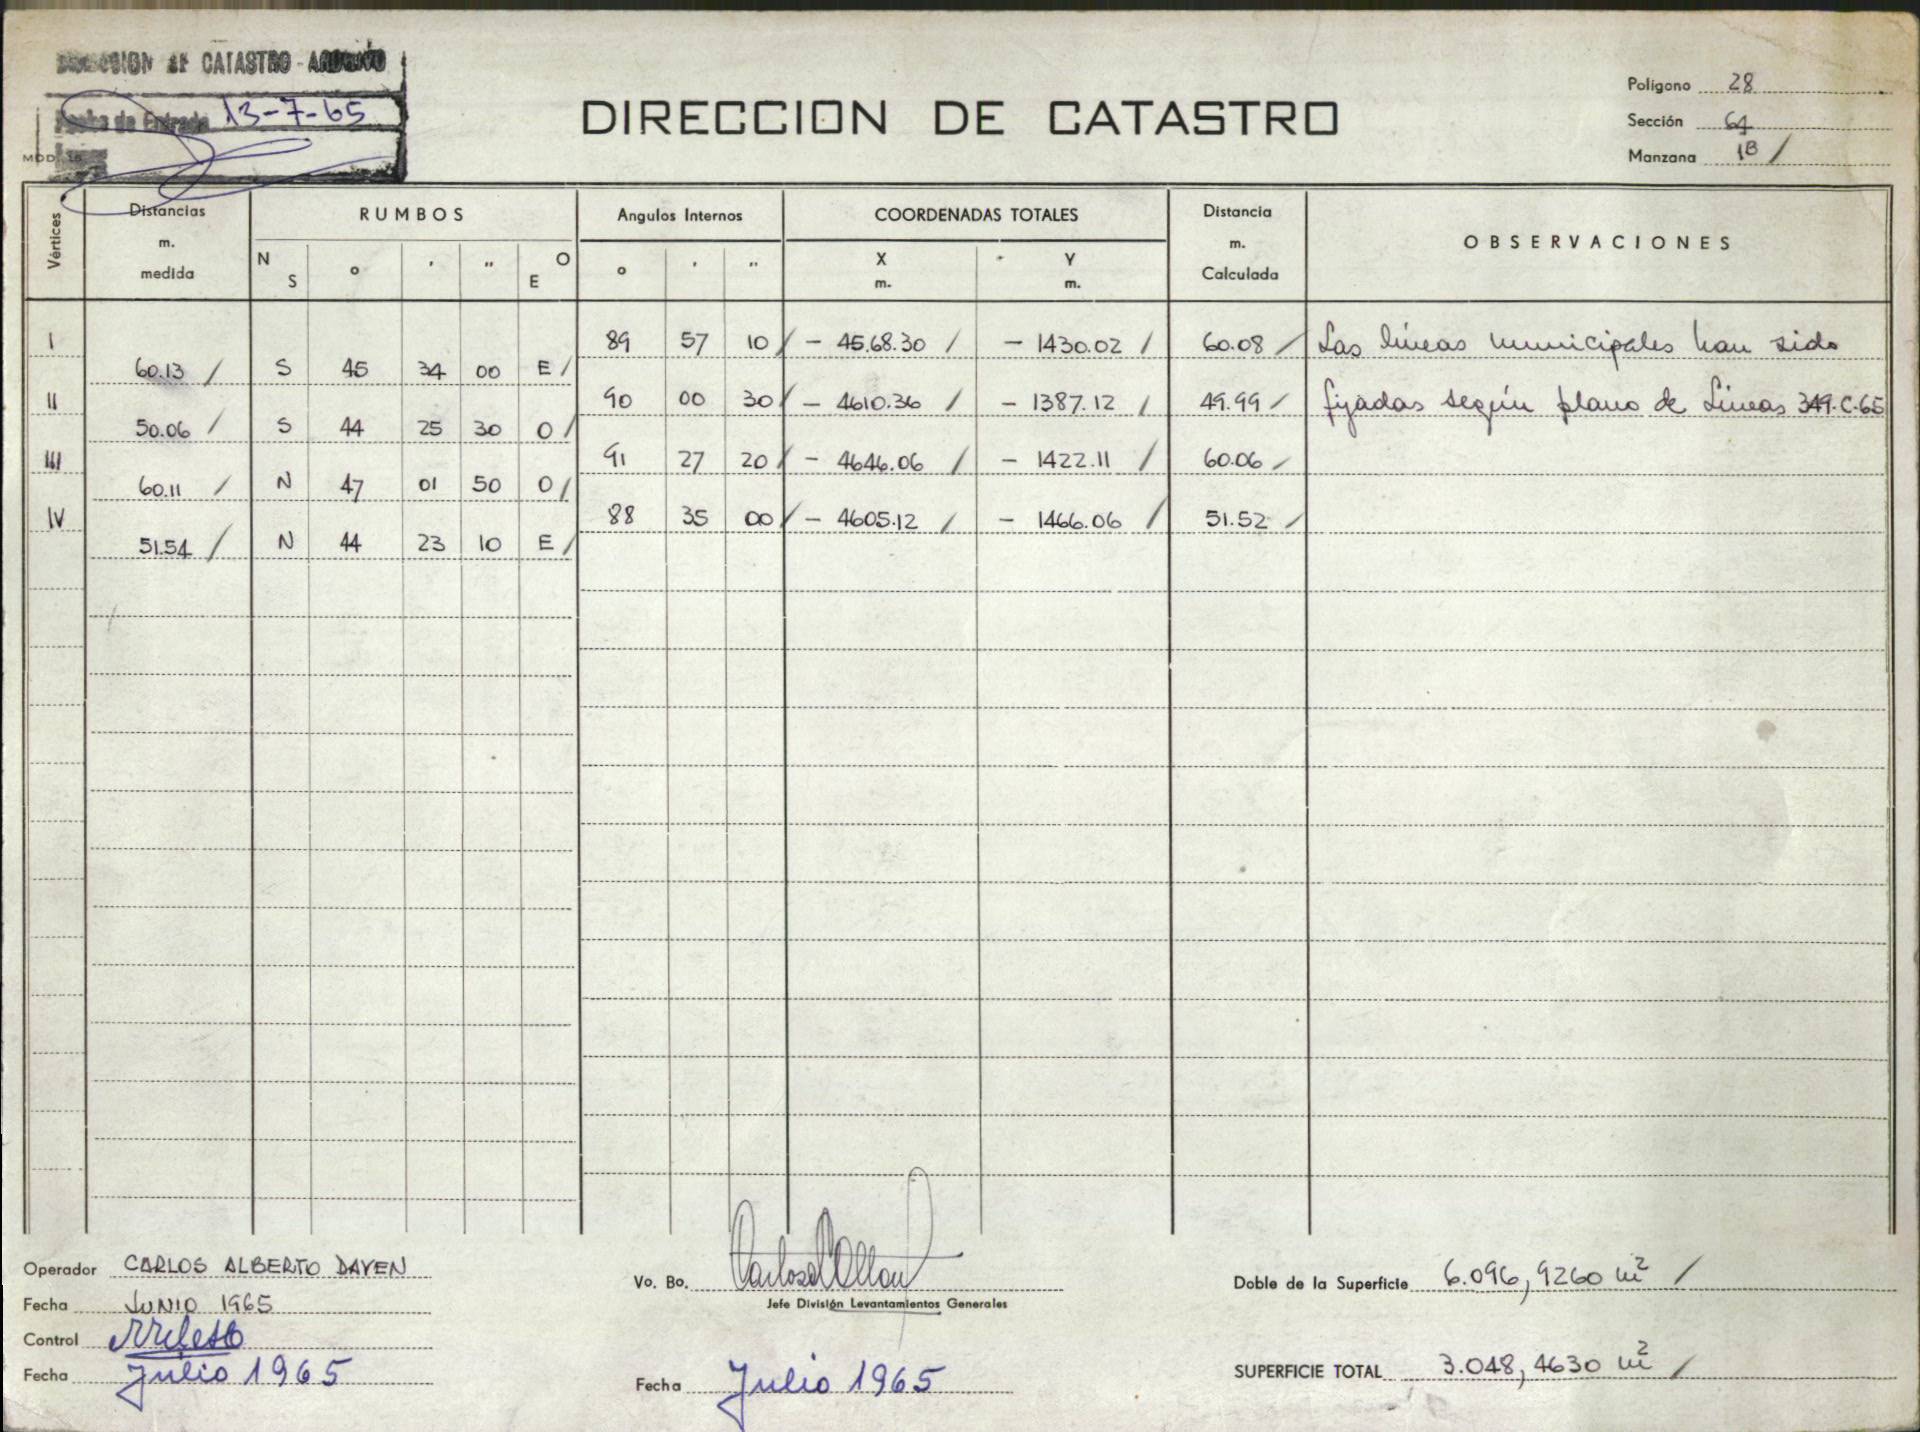 DIRECCION DE CATASTRO - ARCHIVO
Fecha de Entrada 13-7-65
MOD.
DIRECCION DE CATASTRO
Polígono 28
Sección 64
Manzana 1B /
Vértices
Distancias m. medida
RUMBOS
N S o ' " E O
Angulos Internos
o ' "
COORDENADAS TOTALES
X m. Y m.
Distancia m. Calculada
OBSERVACIONES
I 89 57 10 / - 45.68.30 / - 1430.02 / 60.08 / Las líneas municipales han sido
60.13 / S 45 34 00 E /
II 90 00 30 / - 4610.36 / - 1387.12 / 49.99 / fijadas según plano de Líneas 349-C-65
50.06 / S 44 25 30 O /
III 91 27 20 / - 4646.06 / - 1422.11 / 60.06 /
60.11 / N 47 01 50 O /
IV 88 35 00 / - 4605.12 / - 1466.06 / 51.52 /
51.54 / N 44 23 10 E /
Operador CARLOS ALBERTO DAVEN
Fecha JUNIO 1965
Control
Fecha Julio 1965
Vo. Bo.
Jefe División Levantamientos Generales
Fecha Julio 1965
Doble de la Superficie 6.096,9260 m² /
SUPERFICIE TOTAL 3.048,4630 m² /